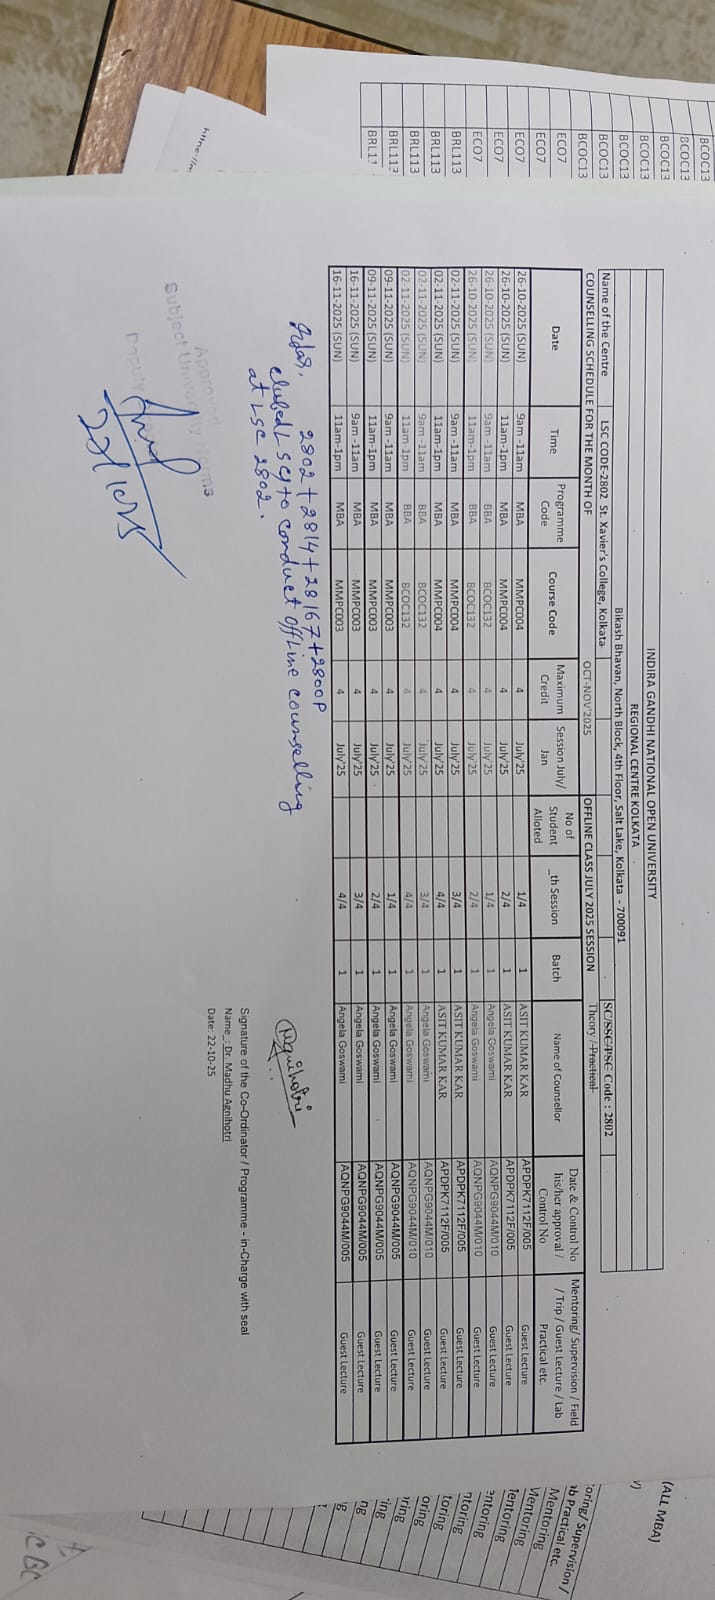 INDIRA GANDHI NATIONAL OPEN UNIVERSITY
REGIONAL CENTRE KOLKATA
Bikash Bhavan, North Block, 4th Floor, Salt Lake, Kolkata - 700091
Name of the Centre LSC CODE-2802 St. Xavier's College, Kolkata SC/SSC/PSC Code : 2802
COUNSELLING SCHEDULE FOR THE MONTH OF OCT-NOV'2025 OFFLINE CLASS JULY 2025 SESSION Theory / Practical
Date Time Programme Code Course Code Maximum Credit Session July/ Jan No of Student Alloted _th Session Batch Name of Counsellor Date & Control No his/her approval / Control No Mentoring/ Supervision / Field / Trip / Guest Lecture / Lab Practical etc.
26-10-2025 (SUN) 9am -11am MBA MMPC004 4 July'25 1/4 1 ASIT KUMAR KAR APDPK7112F/005 Guest Lecture
26-10-2025 (SUN) 11am-1pm MBA MMPC004 4 July'25 2/4 1 ASIT KUMAR KAR APDPK7112F/005 Guest Lecture
26-10-2025 (SUN) 9am -11am BBA BCOC132 4 July'25 1/4 1 Angela Goswami AQNPG9044M/010 Guest Lecture
26-10-2025 (SUN) 11am-1pm BBA BCOC132 4 July'25 2/4 1 Angela Goswami AQNPG9044M/010 Guest Lecture
02-11-2025 (SUN) 9am -11am MBA MMPC004 4 July'25 3/4 1 ASIT KUMAR KAR APDPK7112F/005 Guest Lecture
02-11-2025 (SUN) 11am-1pm MBA MMPC004 4 July'25 4/4 1 ASIT KUMAR KAR APDPK7112F/005 Guest Lecture
02-11-2025 (SUN) 9am -11am BBA BCOC132 4 July'25 3/4 1 Angela Goswami AQNPG9044M/010 Guest Lecture
02-11-2025 (SUN) 11am-1pm BBA BCOC132 4 July'25 4/4 1 Angela Goswami AQNPG9044M/010 Guest Lecture
09-11-2025 (SUN) 9am -11am MBA MMPC003 4 July'25 1/4 1 Angela Goswami AQNPG9044M/005 Guest Lecture
09-11-2025 (SUN) 11am-1pm MBA MMPC003 4 July'25 2/4 1 Angela Goswami AQNPG9044M/005 Guest Lecture
16-11-2025 (SUN) 9am -11am MBA MMPC003 4 July'25 3/4 1 Angela Goswami AQNPG9044M/005 Guest Lecture
16-11-2025 (SUN) 11am-1pm MBA MMPC003 4 July'25 4/4 1 Angela Goswami AQNPG9044M/005 Guest Lecture
2802 + 2814 + 28167 + 2800P
clubed LSCs to conduct offline counselling
at LSC 2802.
Agnihotri
Signature of the Co-Ordinator / Programme - in-Charge with seal
Name : Dr. Madhu Agnihotri
Date: 22-10-25
Approved
Subject University Norms
Deputy
22/10/25
BCOC13
BCOC13
BCOC13
BCOC13
BCOC13
BCOC13
BCOC13
ECO7
ECO7
ECO7
ECO7
ECO7
BRL113
BRL113
BRL113
BRL113
(ALL MBA)
Mentoring
Mentoring